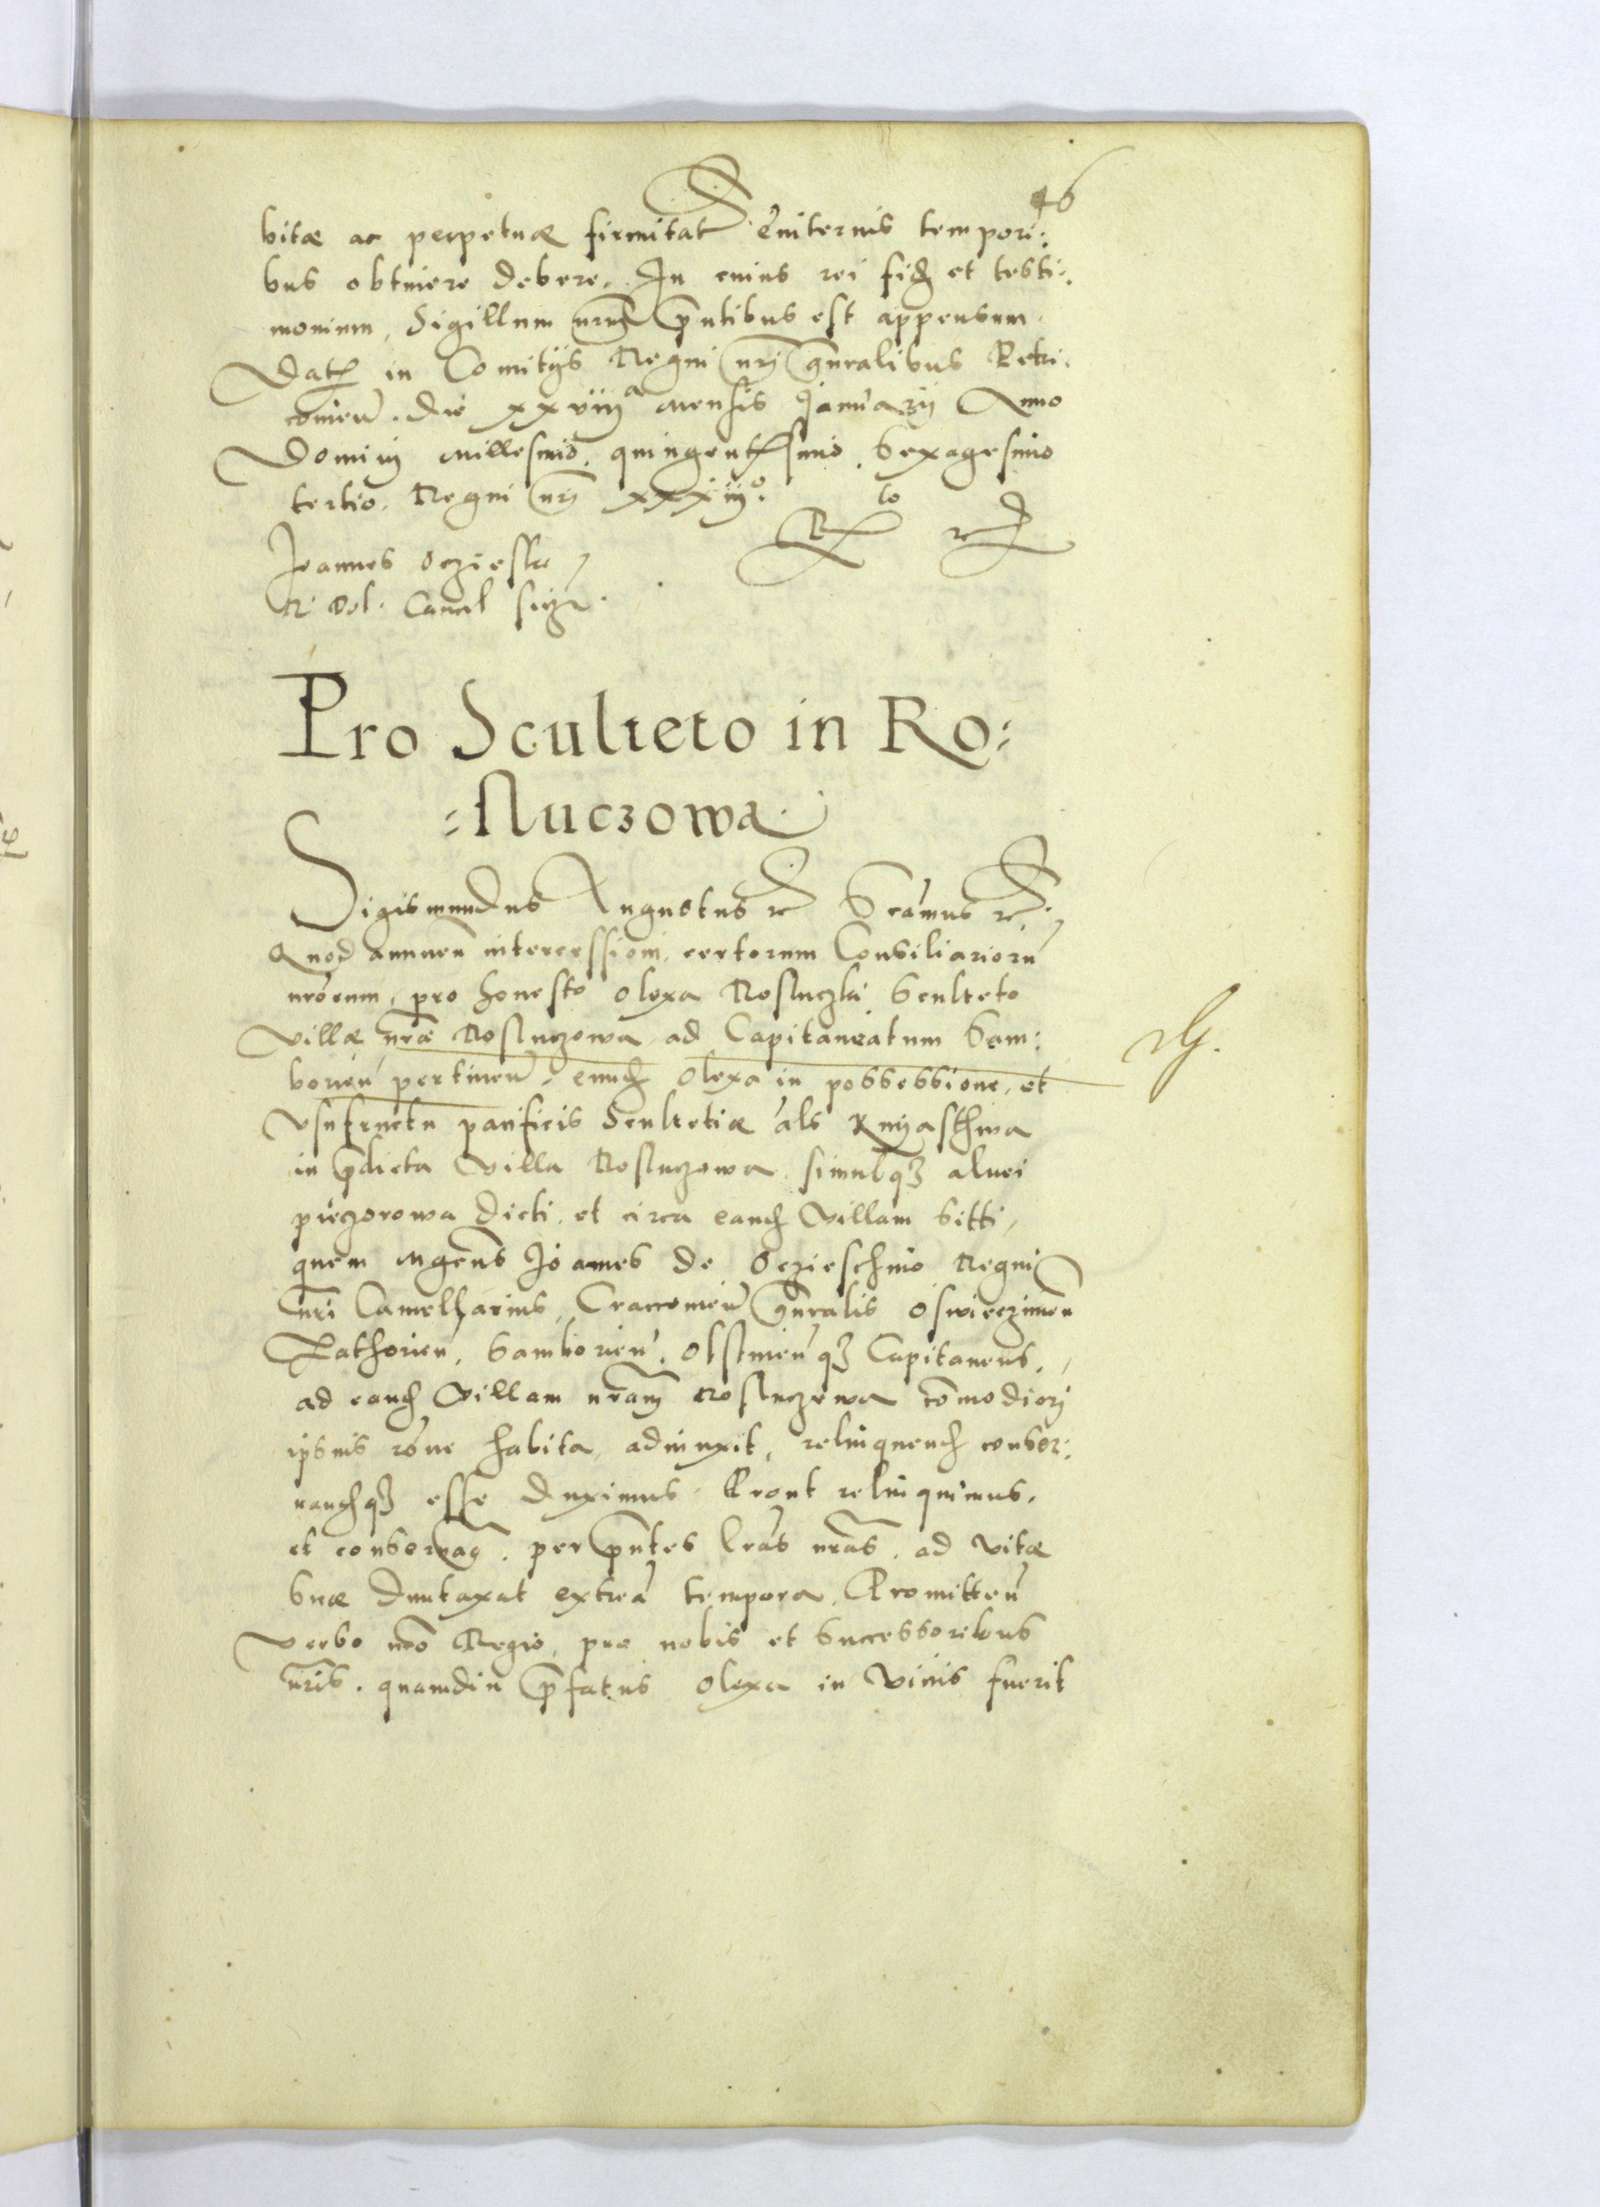 46
bitæ ac perpetuæ firmitat eviternis tempori:
bus obtinere debere. In cuius rei fid et testi:
monium, Sigillum nrum pntibus est appensum.
Dat in Comitijs Regni nri gnralibus Petri:
comien. die xxviij a mensis Januarij Anno
Domini Millesimo, quingentesimo, Sexagesimo
tertio. Regni nri xxxiij o.
Joannes Oczieski
R. Pol. Cancel
Pro Sculteto in Ro:
:sluczowa
Sigismundus Augustus rc
Quod annuen intercessioni, certorum Consiliarioru
nrorum, pro honesto Olexa Rosluczki Sculteto
villæ nræ Rosluczowa ad Capitaneatum Sam:
borien pertinen, eund Olexa in possessione, et
vsufructu pacificis Scultetiæ als Knyasthwa
in pdicta villa Rosluczowa, simulq3 aluei
piéczorowa dicti, et circa eand villam sitti,
quem Mgcus Joannes de Oczieschino Regni
nri Cancellarius, Cracovien gnralis Oswieczimen
Zathorien, Samborien, Olstinen q3 Capitaneus,
ad eand villam nram Rosluczowa commodiori
ipsius róne habita, adiunxit, relinquend conser:
uandq3 esse duximus. Prout relinquimus,
et conseruam, per pntes lras nras, ad vitæ
suæ duntaxat extrea tempora, Promitten
verbo nro Regio, pro nobis et successoribus
nris, quamdiu pfatus Olexa in viuis fuerit